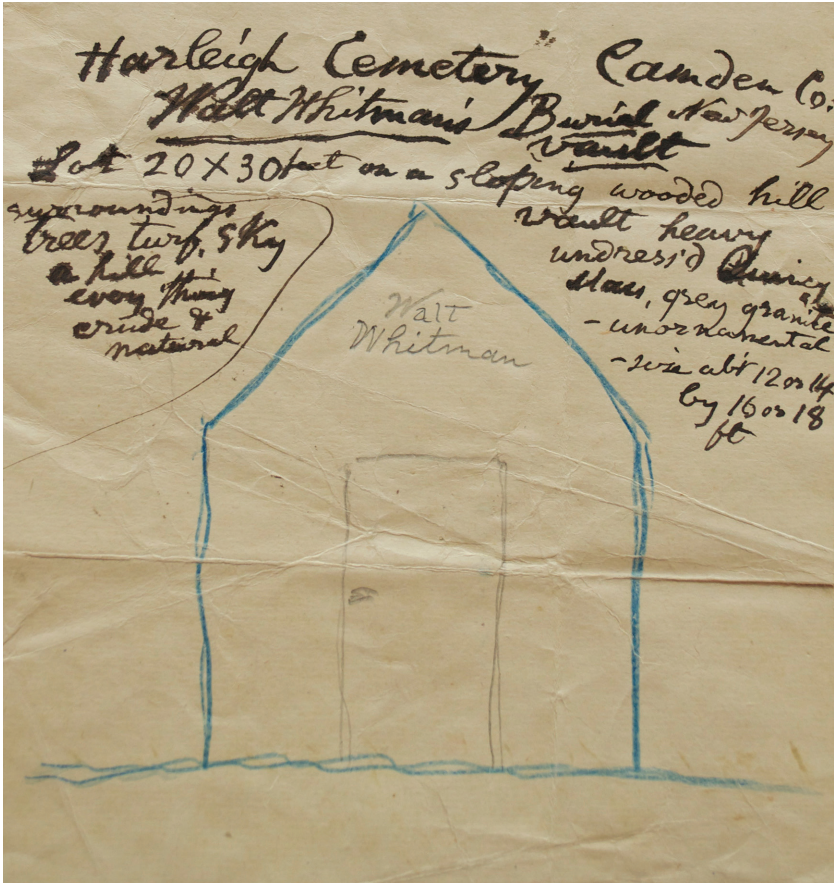 Harleigh Cemetery Camden Co.
New Jersey
Walt Whitman's Burial
vault
Lot 20 X 30 feet on a sloping wooded hill
surroundings
trees, turf, sky
a hill
every thing
crude &
natural
vault heavy
undress'd Quincy
Mass, grey granite
- unornamental
- size ab't 12 or 14
by 16 or 18
ft
Walt
Whitman